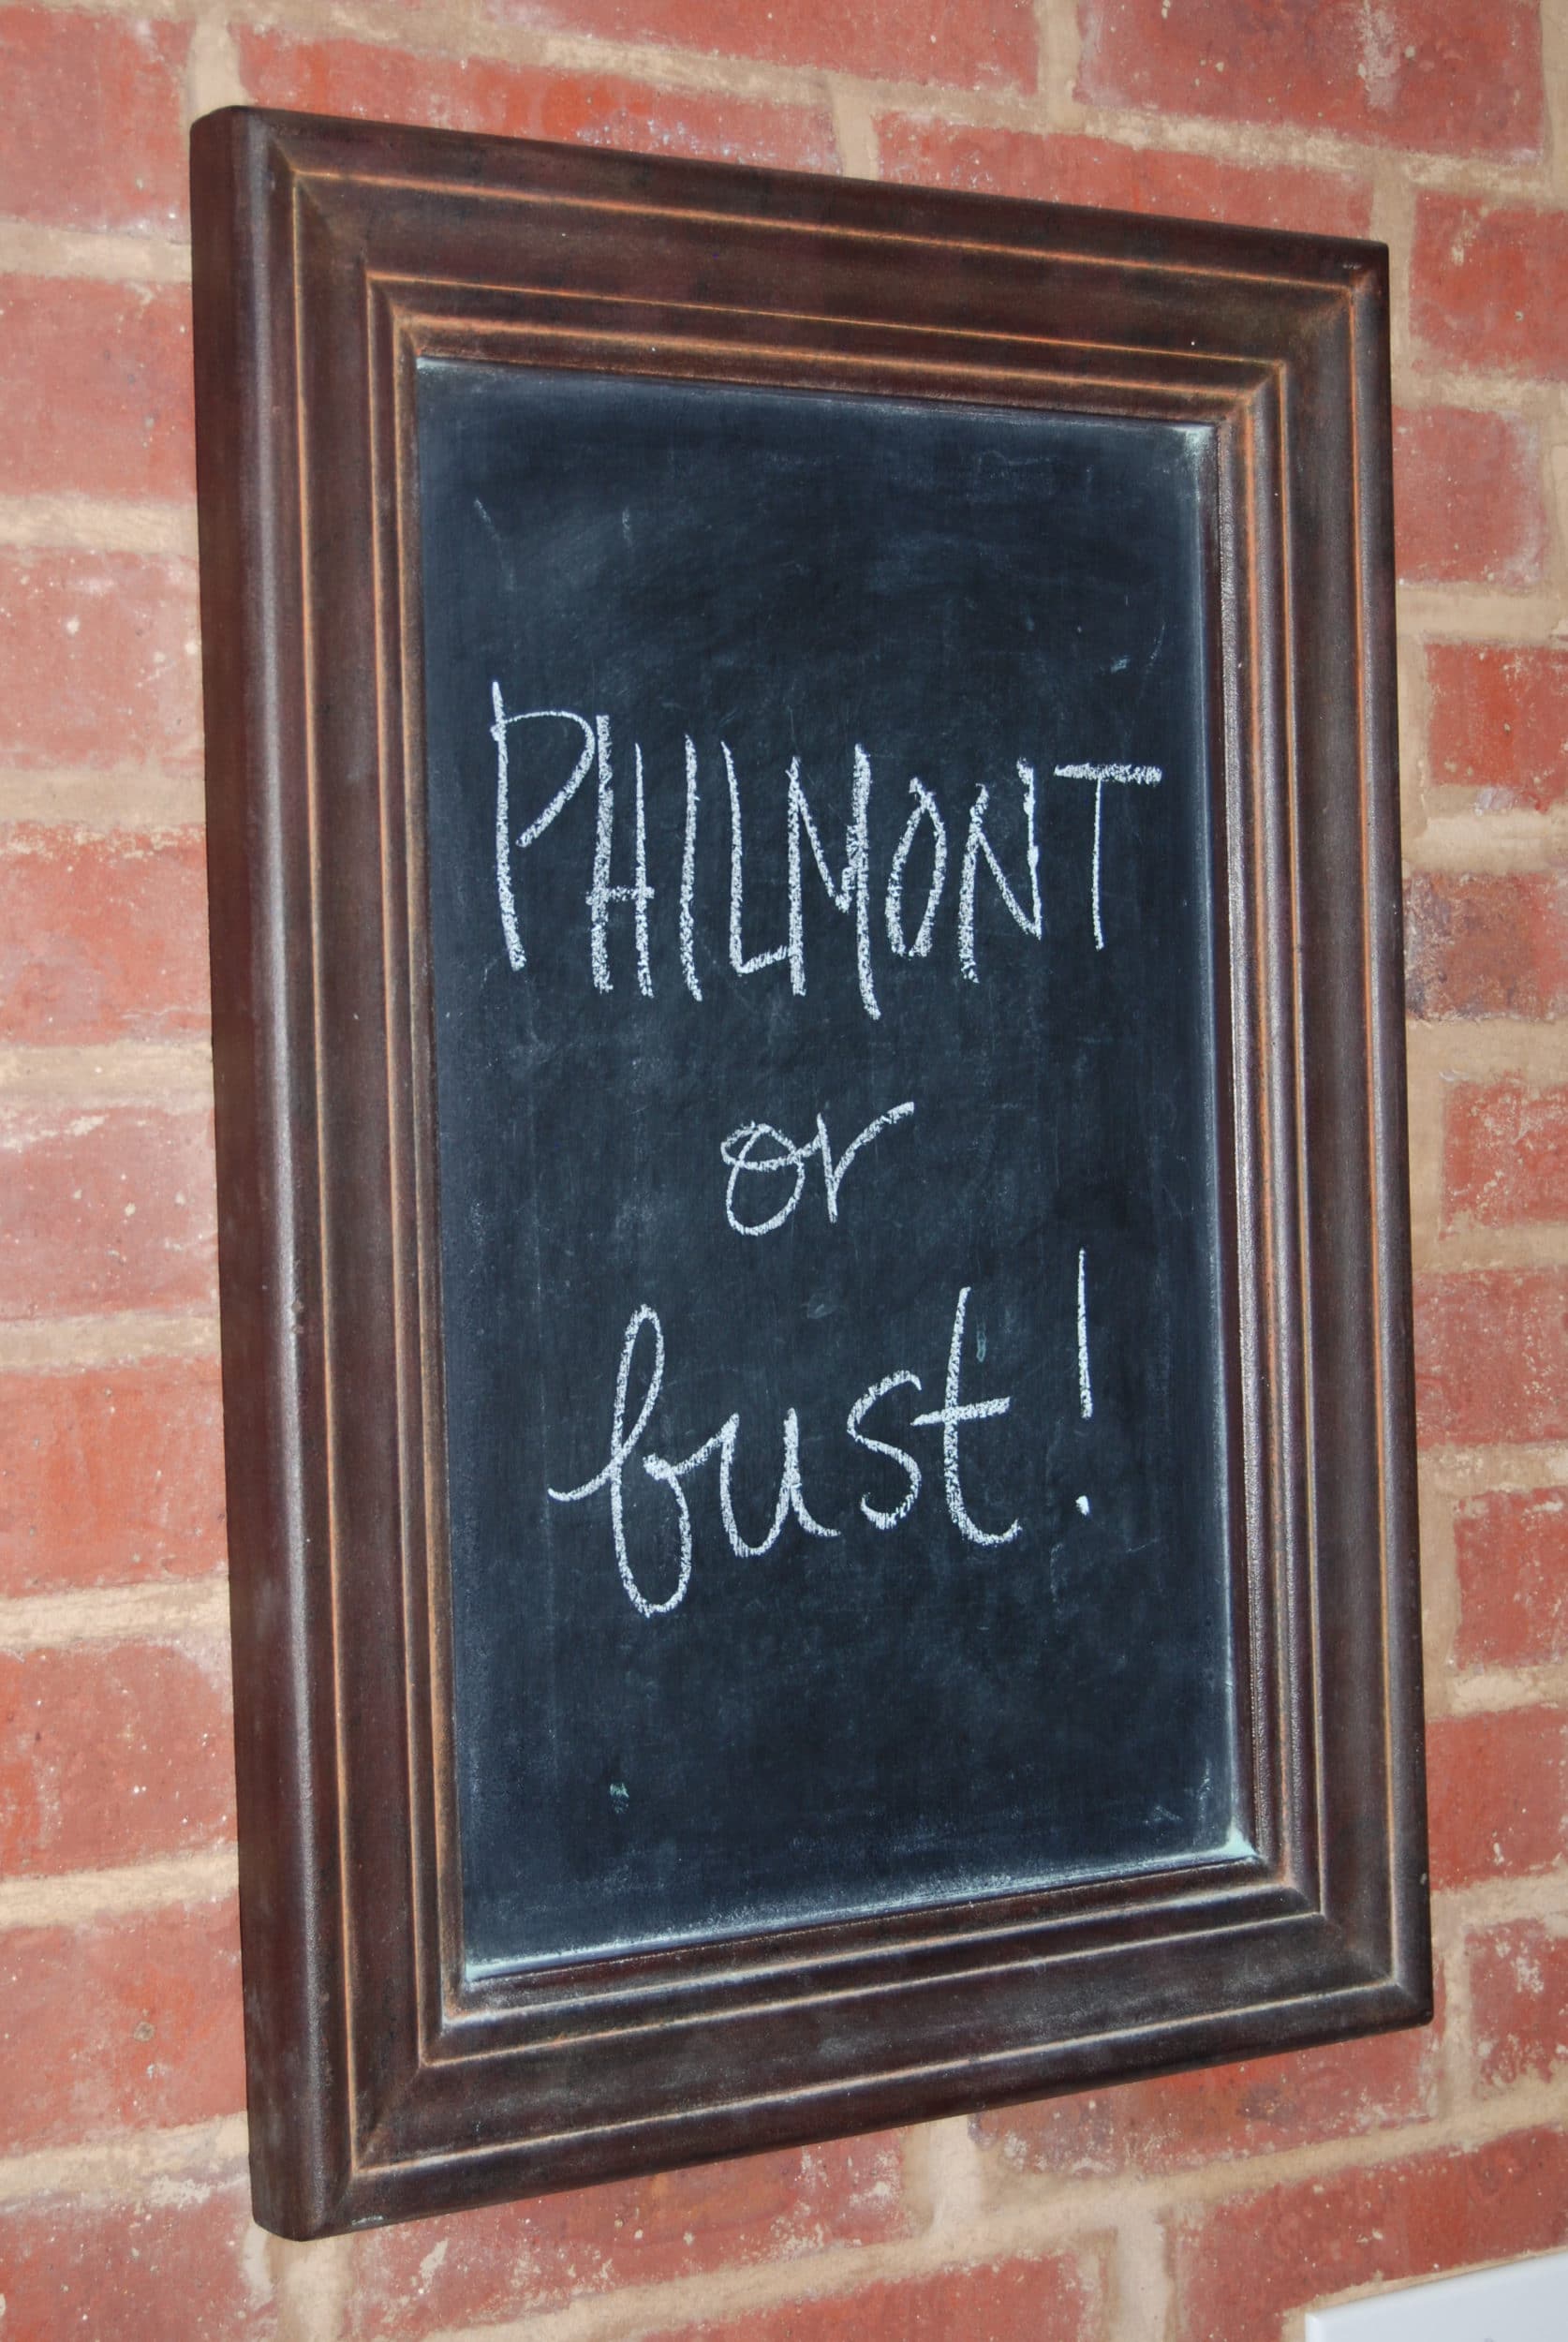 PHILMONT
or
bust!